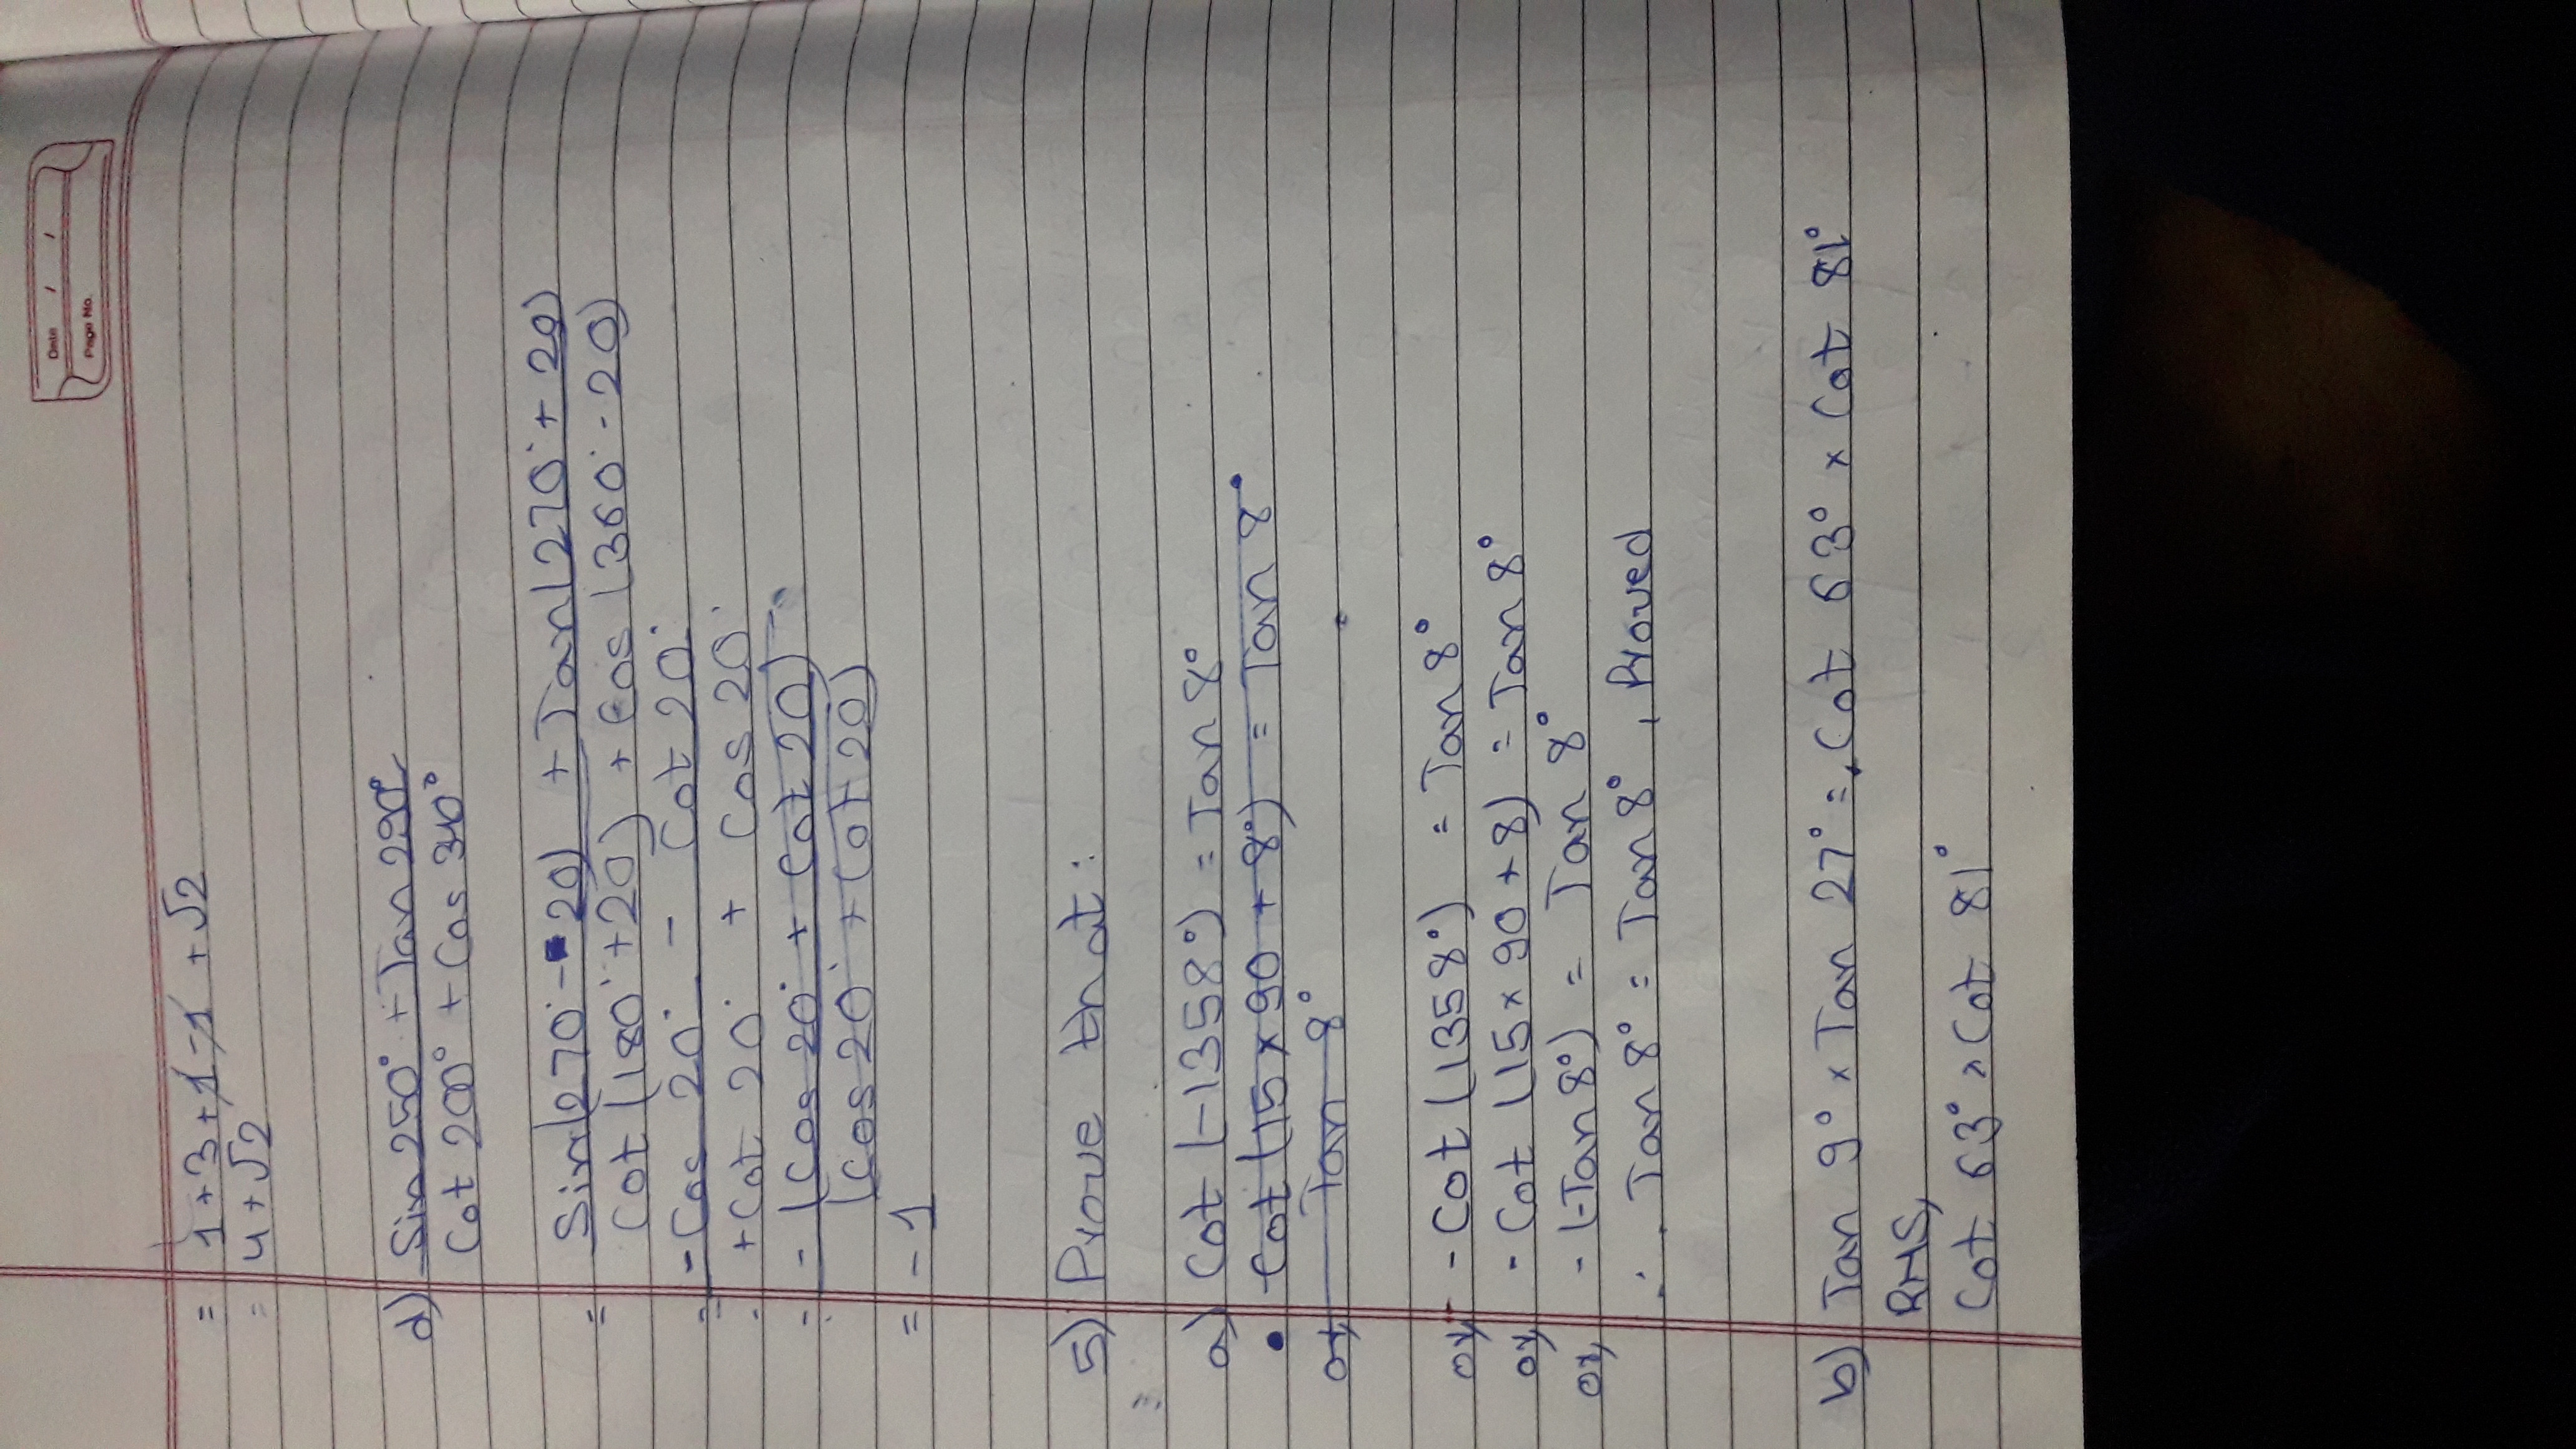 Date / /
Page No.
= 1+3+1-1 +√2
= 4+√2
d) Sin 250° + Tan 290°
Cot 200° + Cos 340°
= Sin(270° - 20) + Tan(270° + 20)
Cot (180° +20) + Cos (360° - 20)
= -Cos 20° - Cot 20°
+Cot 20° + Cos 20°
= - (Cos 20° + Cot 20)
(Cos 20° + Cot 20)
= -1
5) Prove that:
a) Cot (-1358°) = Tan 8°
Cot (15×90 + 8°) = Tan 8°
or, Tan 8°
or, -Cot (1358°) = Tan 8°
or, -Cot (15×90+8) = Tan 8°
or, -(-Tan 8°) = Tan 8°
∴ Tan 8° = Tan 8°, Proved
b) Tan 9° × Tan 27° = Cot 63° × Cot 81°
RHS,
Cot 63° × Cot 81°